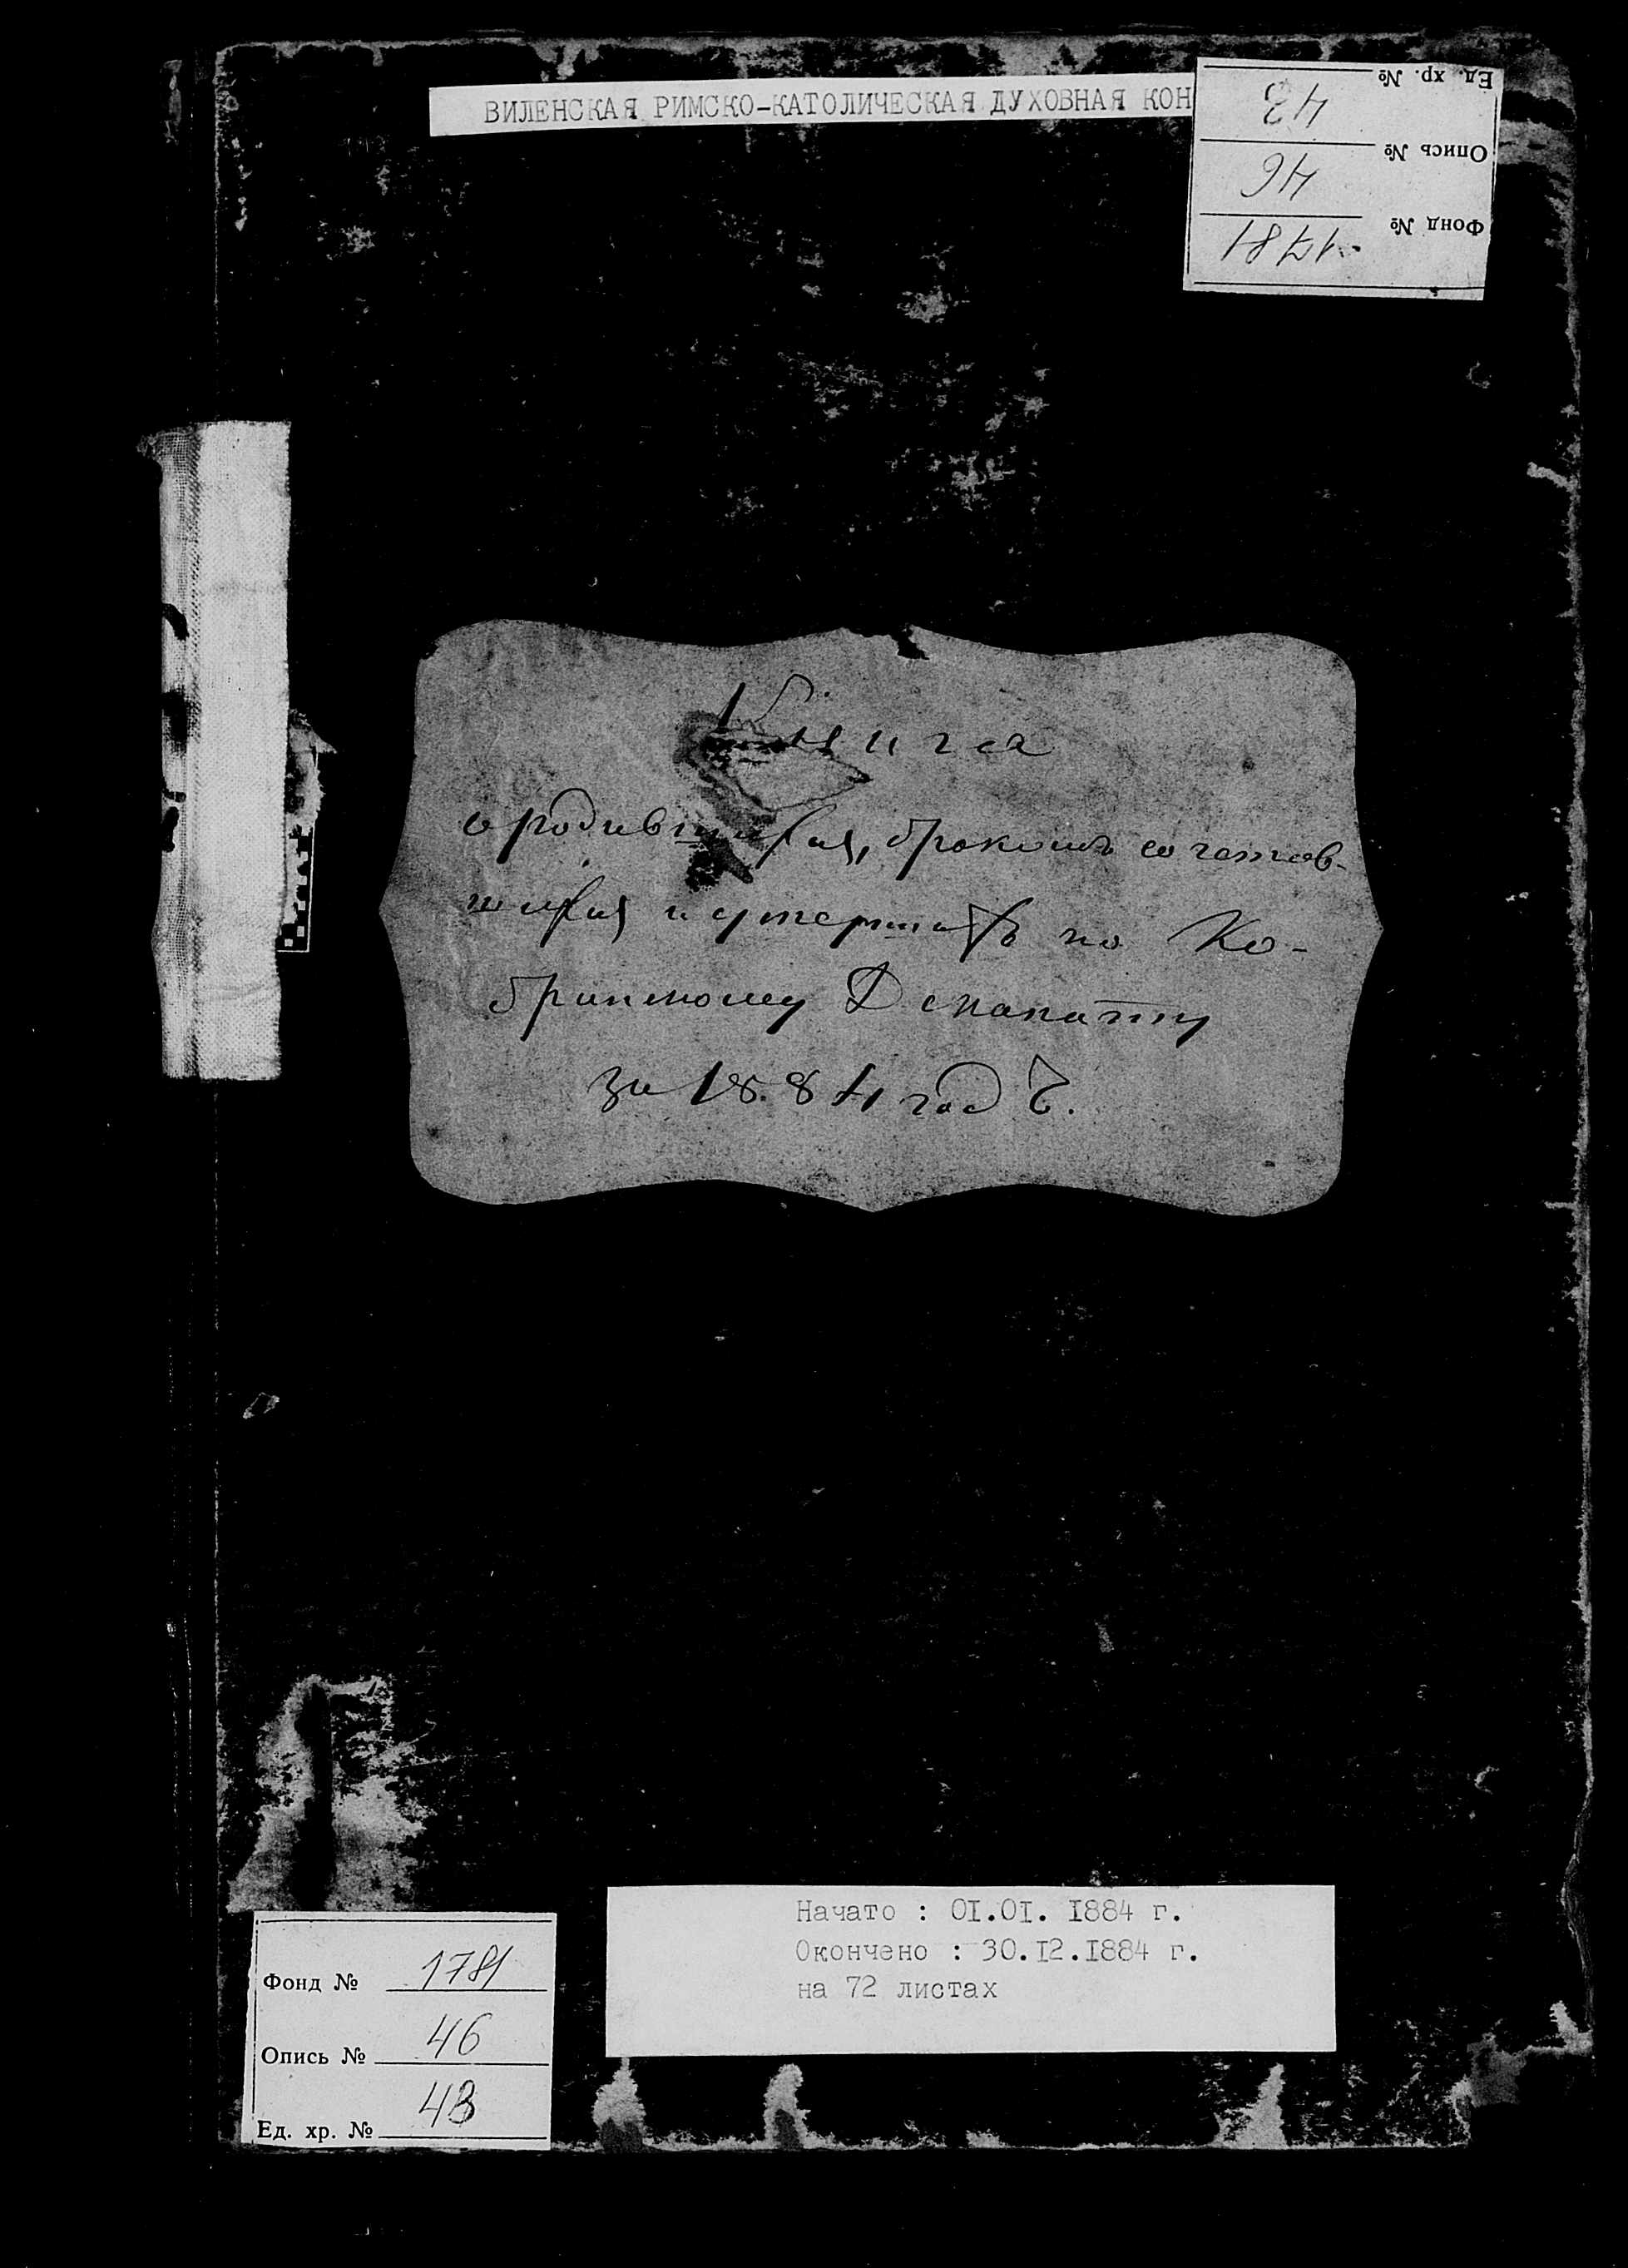 ВИЛЕНСКАЯ РИМСКО-КАТОЛИЧЕСКАЯ ДУХОВНАЯ КОН
Фонд № 1781
Опись № 46
Ед. хр. № 43
Книга
о родившихся, бракомъ сочетав-
шихся и умершихъ по Ко-
бринскому Деканату
за 1884 годъ.
Начато : 01.01. 1884 г.
Окончено : 30.12.1884 г.
на 72 листах
Фонд № 1781
Опись № 46
Ед. хр. № 43